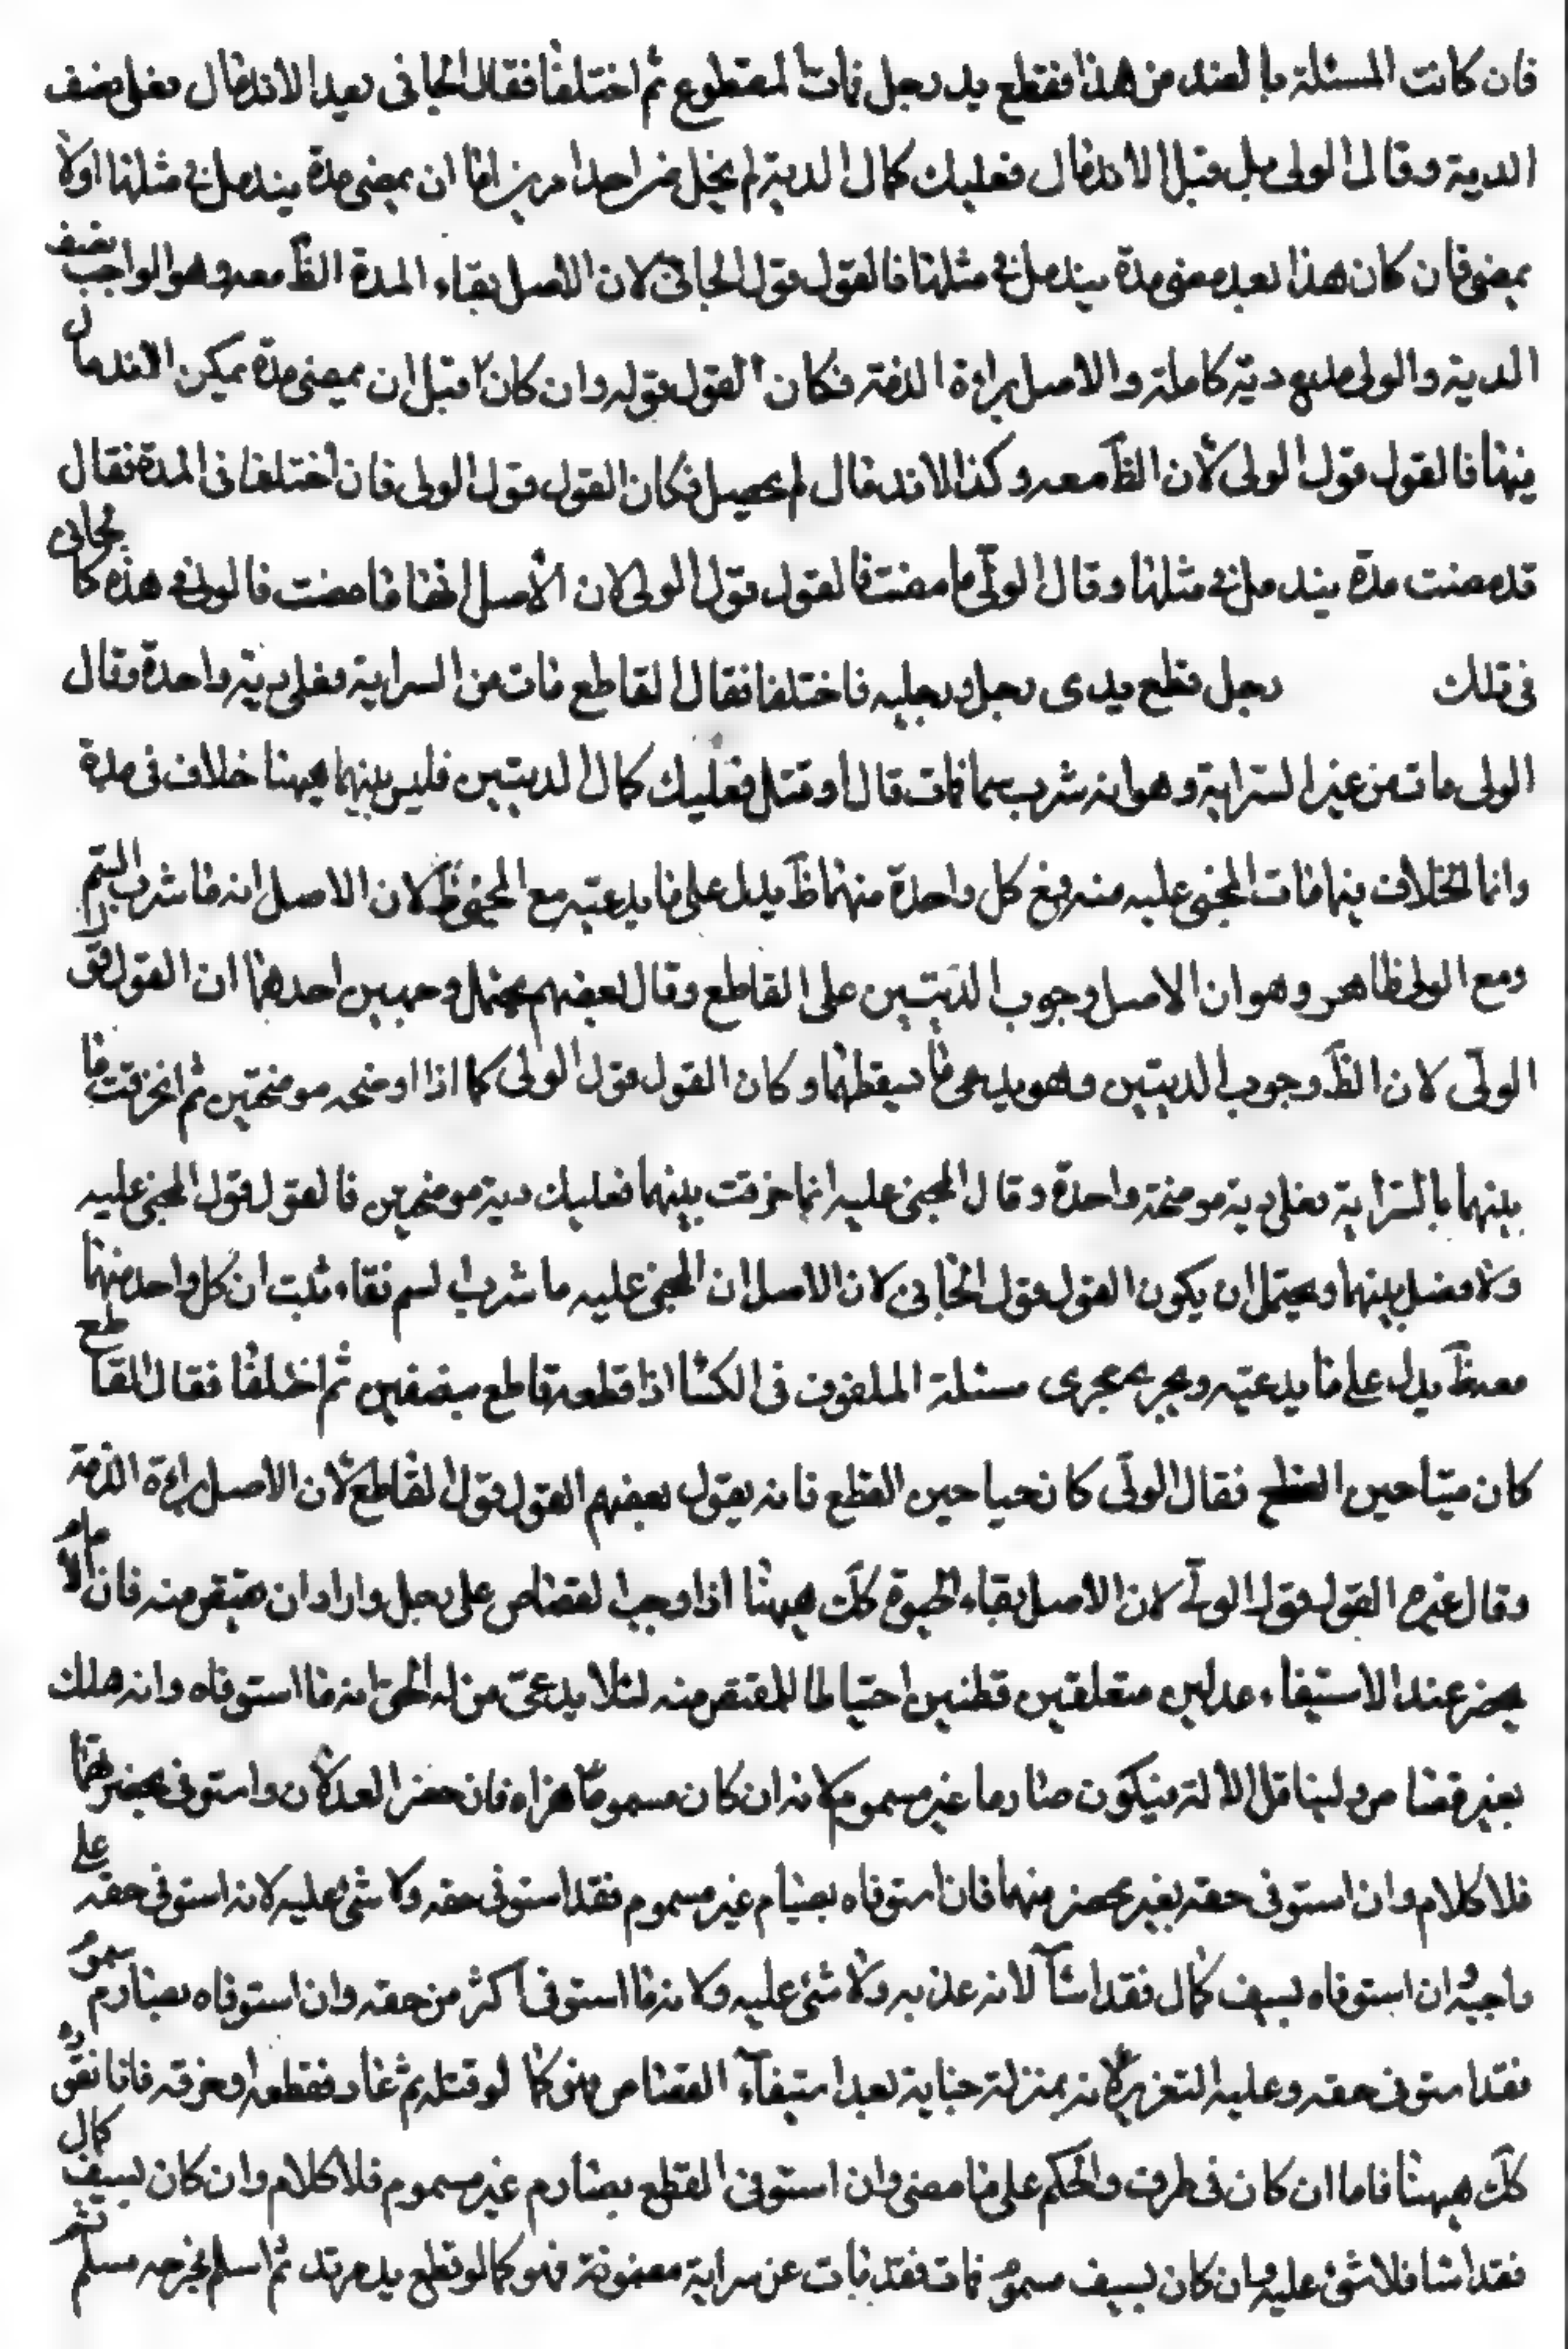 فان كانت المسئلة بالضد من هذا فقطع يد رجل فمات المقطوع ثم اختلفا فقال الجانى بعد الاندمال فعلى نصف
الدية وقال الولى بل قبل الاندمال فعليك كمال الدية لم يخل من احد امرين اما ان يمضى مدة يندمل فى مثلها اولا
يمضى فان كان هذا بعد مضى مدة يندمل فى مثلها فالقول قول الجانى لان الاصل بقاء المدة الظ معه وهو الواجب نصف
الدية والولى يدعى دية كاملة والاصل براءة الذمة فكان القول قوله وان كان قبل ان يمضى مدة يمكن الاندمال
فيها فالقول قول الولى لان الظ معه وكذا الاندمال لم يحصل فكان القول قول الولى فان اختلفا فى المدة فقال
قد مضت مدة يندمل فى مثلها وقال الولى ما مضت فالقول قول الولى لان الاصل انها ما مضت فالولى فى هذه كالجانى
فى تلك رجل قطع يدى رجل ورجليه فاختلفا فقال القاطع مات من السراية فعلى دية واحدة وقال
الولى مات من غير السراية وهو انه شرب سما فمات قال او قتل فعليك كمال الديتين فليس بينهما ههنا خلاف فى مدة
وانما الخلاف فيما مات المجنى عليه منه ومع كل واحدة منهما ظ يدل على ما يدعيه مع لان الاصل انه ما شرب السم
ومع الولى ظاهر وهو ان الاصل وجوب الديتين على القاطع وقال بعضهم يحتمل وجهين احدهما ان القول قول
الولى لان الظ وجوب الديتين وهو يدعى ما يسقطهما وكان القول قول الولى كما اذا اوضحه موضحتين ثم انخرقت ما
بينهما بالسراية فعلى دية موضحة واحدة وقال المجنى عليه انما خرقت بينهما فعليك دية موضحتين فالقول قول المجنى عليه
ولا فصل بينهما ويحتمل ان يكون القول قول الجانى لان الاصل ان المجنى عليه ما شرب السم فقد ثبت ان كل واحد منهما
معه ظ يدل على ما يدعيه ويجرى مجرى مسئلة الملفوف فى الكسا اذا قطعه قاطع بنصفين ثم اختلفا فقال القاطع
كان ميتا حين القطع فقال الولى كان حيا حين القطع فانه يقول بعضهم القول قول القاطع لان الاصل براءة الذمة
وقال غيره القول قول الولى لان الاصل بقاء الحيوة كك ههنا اذا وجب القصاص على رجل واراد ان يقتص منه فان الامام
يحضر عند الاستيفاء عدلين متعلقين فطنين احتياطا للمقتص منه لئلا يدعى من له الحق انه ما استوفاه وانه هلك
بغير قصاص وليتامل الالة فيكون صارما غير مسموم لانه ان كان مسموما هراه فان حضر العدلان واستوفى بحضرتهما
فلا كلام وان استوفى حقه بغير محضر منهما فان استوفاه بصارم غير مسموم فقد استوفى حقه ولا شئ عليه لانه استوفى حقه على
واجبه وان استوفاه بسيف كال فقد اساء لانه عذبه ولا شئ عليه لانه ما استوفى اكثر من حقه وان استوفاه بصارم مسموم
فقد استوفى حقه وعليه التعزير لانه بمنزلة جناية بعد استيفاء القصاص فهو كما لو قتله ثم عاد فقطعه او حرقه فانا نعزره
كك ههنا فاما ان كان فى طرف والحكم على ما مضى وان استوفى القطع بصارم غير مسموم فلا كلام وان كان بسيف كال
فقد اسا فلا شئ عليه وان كان بسيف مسموم فمات فقد مات عن سراية مضمونة فهو كما لو قطع يد مرتد ثم اسلم فجرحه مسلم